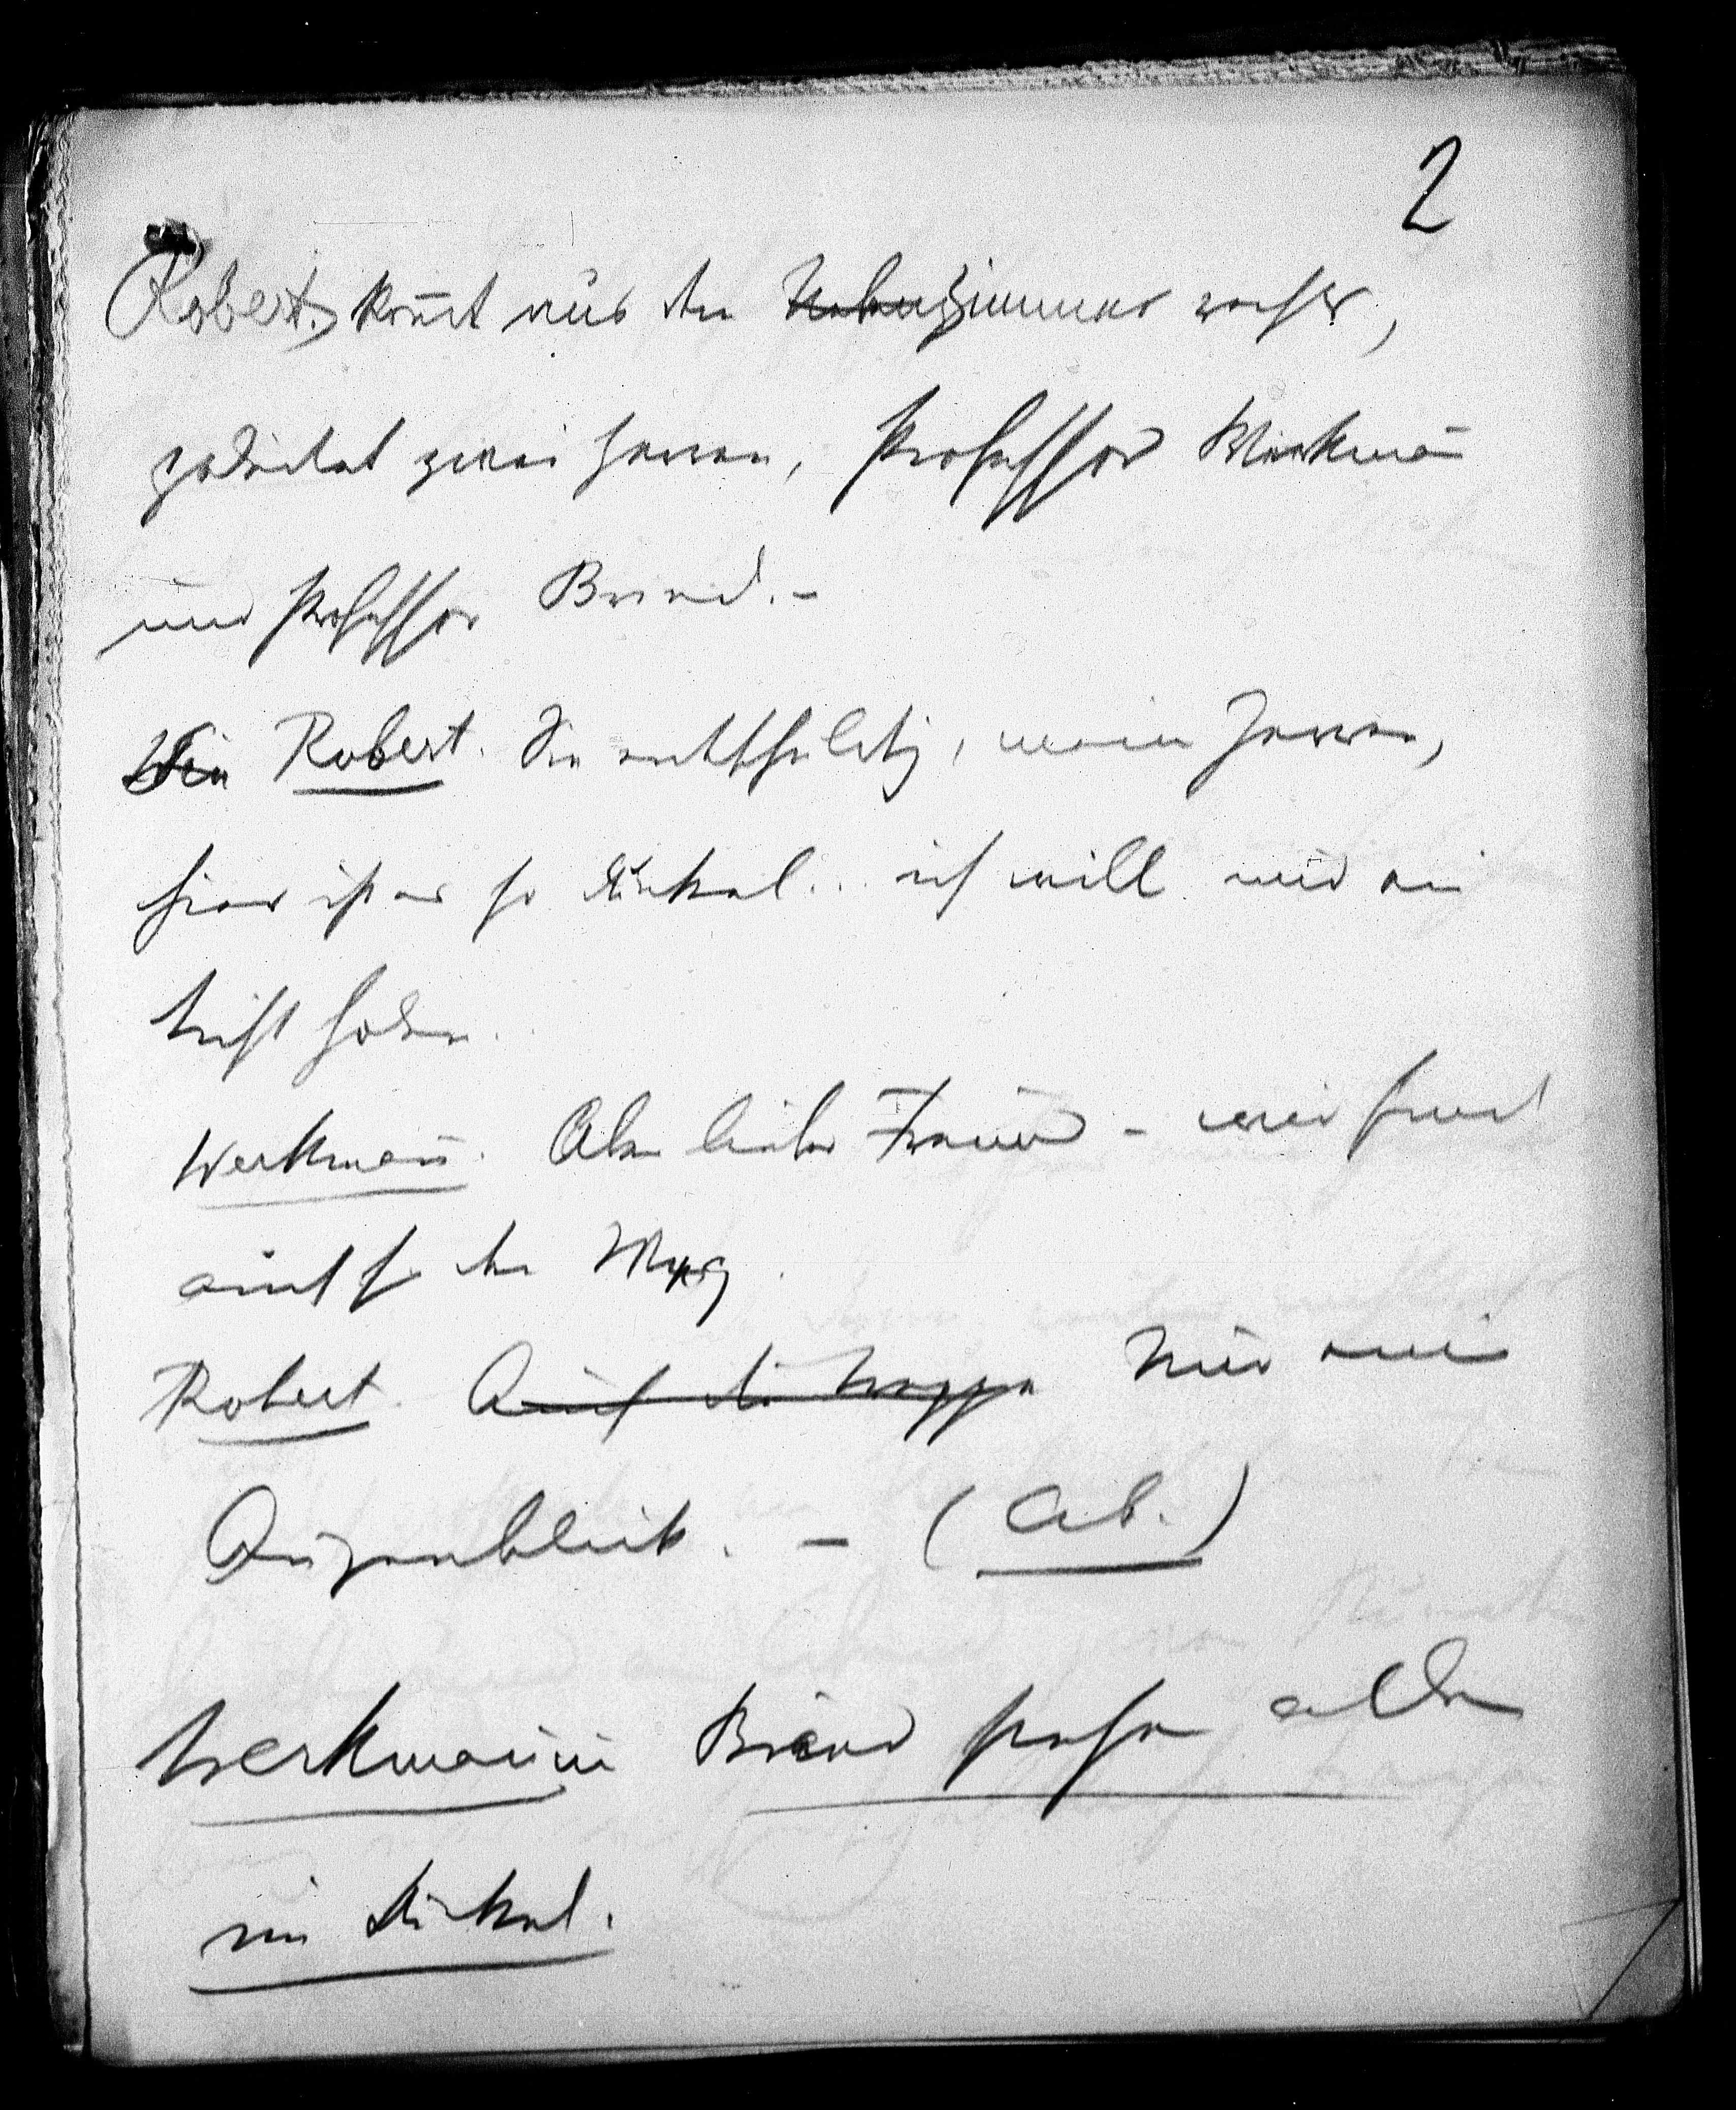 2
Robert. kom̅t aus dem Nebenzimmer rechts,
geleitet zwei Herren, Professor Werkman̅
und Professor Brand.–
Wie Robert. Sie entschuldig, meine Herren,
hier ist es so dunkel... ich will nur ein
Licht holen.
Werkman̅. Aber lieber Freund – wir finden
auch so den Weg.
Robert. Auf die Treppe Nur einen
Augenblick. – (Ab.)
Werkmann Brand stehen allein
im Dunkel.